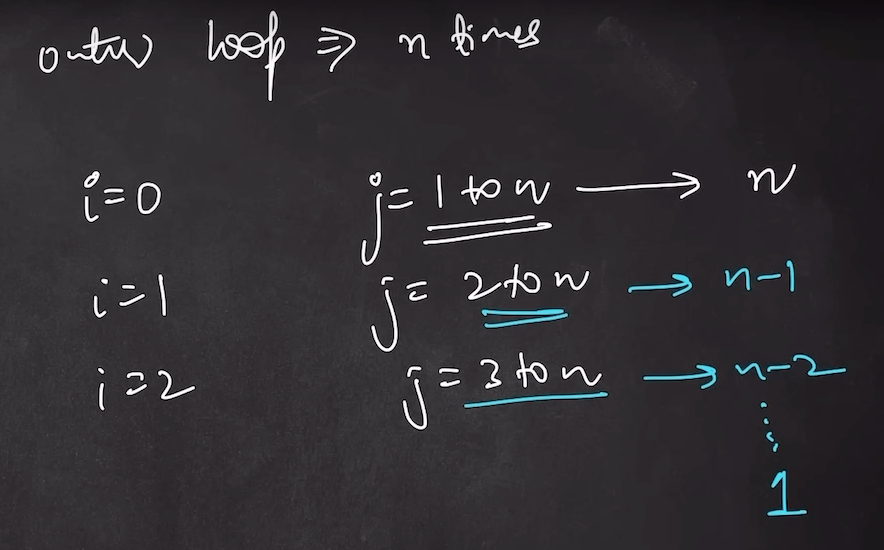 outer loop ⇒ n times
i=0 j= 1 to n → n
i=1 j= 2 to n → n-1
i=2 j= 3 to n → n-2
⋮
1